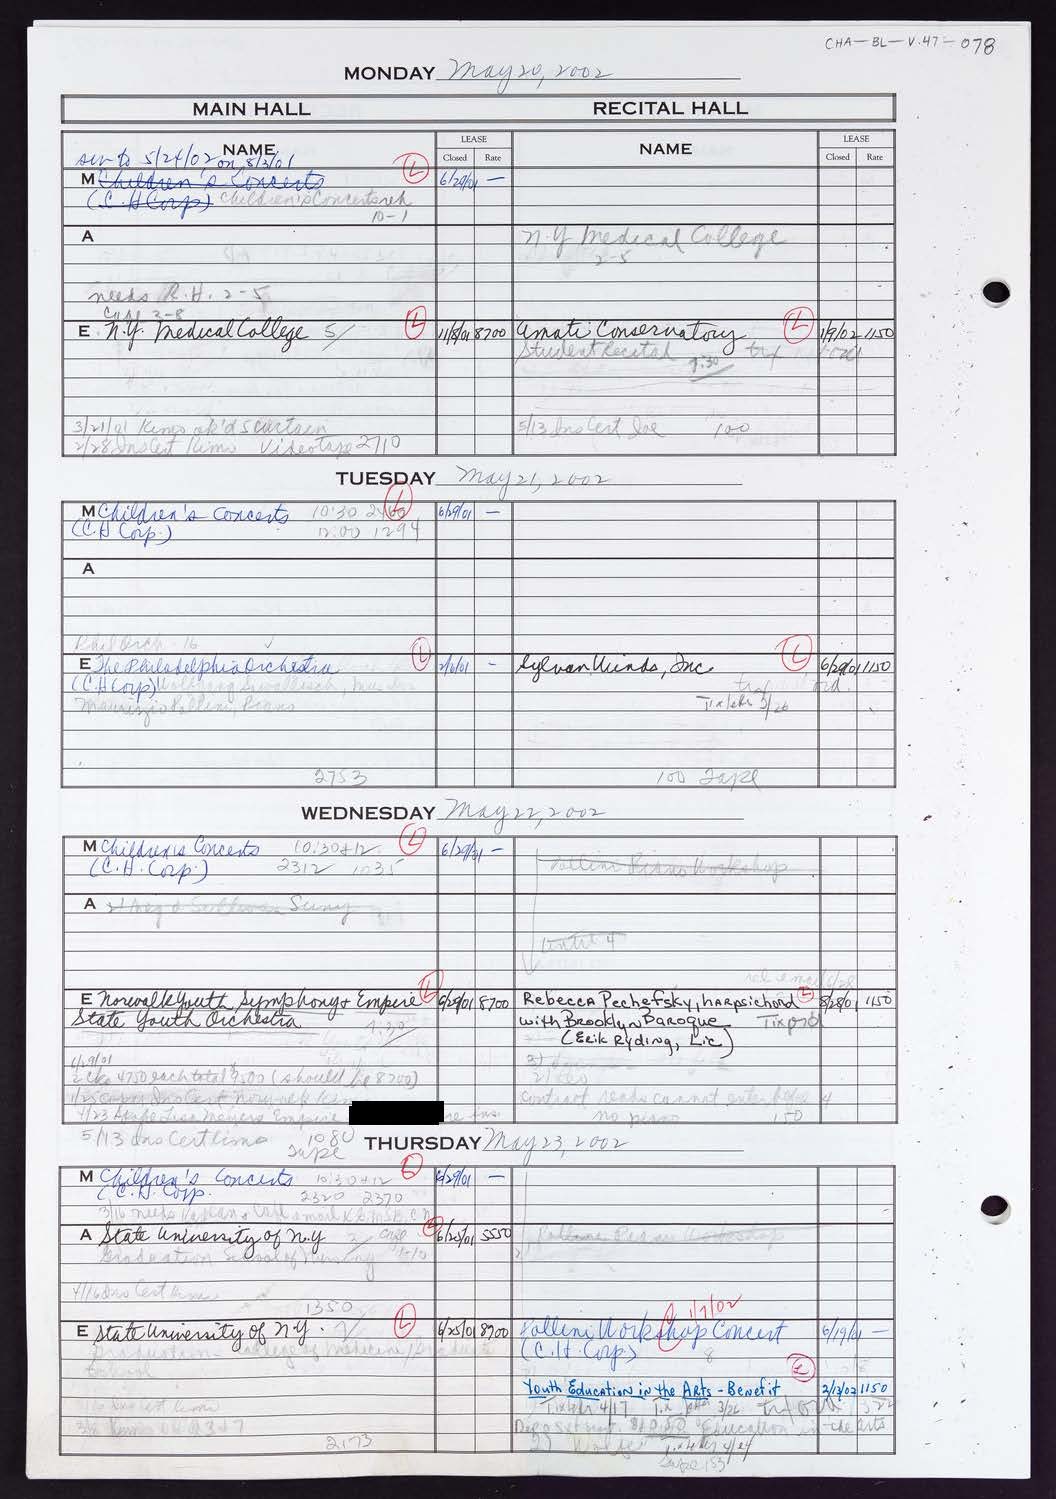 CHA-BL-V.47-078
MONDAY May 20, 2002
MAIN HALL RECITAL HALL
LEASE LEASE
NAME Closed Rate NAME Closed Rate
5/24/02 on 8/3/01
M Children's Concerts L 6/29/01 —
(C.H Corp) Children's Concerts reh
10-1
A N.Y Medical College
2-5
needs R.H. 2-5
3-8
E N.Y. Medical College 5/ L 11/8/01 8700 Amati Conservatory L 1/9/02 1150
Student Recital
7:30
3/21/01 Kims ok'd 5 curtain 5/13 Ins Cert Joe 100
2/28 Ins Cert Kims Videotape 2710
TUESDAY May 21, 2002
M Children's Concerts 10:30 L 6/29/01 —
(C.H Corp.) 12:00 1294
A
Phil Orch - 16 ✓
E The Philadelphia Orchestra L — Sylvan Winds, Inc. L 6/29/01 1150
(C.H Corp) Wolfgang Sawallisch,
Maurizio Pollini, Piano 3/26
2753 100 Tape
WEDNESDAY May 22, 2002
M Children's Concerts 10:30 + 12 L 6/29/01 — Pollini Piano Workshop
(C.H. Corp.) 2312 1035
A Suny
until 4
E Norwalk Youth Symphony + Empire L 6/29/01 8700 Rebecca Pechefsky, harpsichord L 8/28/01 1150
State Youth Orchestra 7:30 with Brooklyn Baroque Tix
(Erik Ryding, Lic)
6/29/01
2 cks 4750 each total 9500 (should be 8700)
1/25 Ins Cert Norwalk contract reads cannot enter before 4
4/23 Empire no piano 150
5/13 Ins Cert Kims 1080
Tape
THURSDAY May 23, 2002
M Children's Concerts 10:30 + 12 L 6/29/01 —
(C.H. Corp. 2320 2370
3/16 needs
A State University of N.Y L 6/25/01 5550 Pollini Piano Workshop
Graduation School of Nursing
4/16 Ins Cert Kims
1350
1/7/02
E State University of N.Y. L 6/25/01 8700 Pollini Workshop Concert 6/19/01 —
Graduation - College of Medicine / (C.H. Corp) 8
School
L
Youth Education in the Arts - Benefit 2/13/02 1150
Ins Cert Kims 4/17 3/26
Education in the arts
2173 4/24
Tape 153